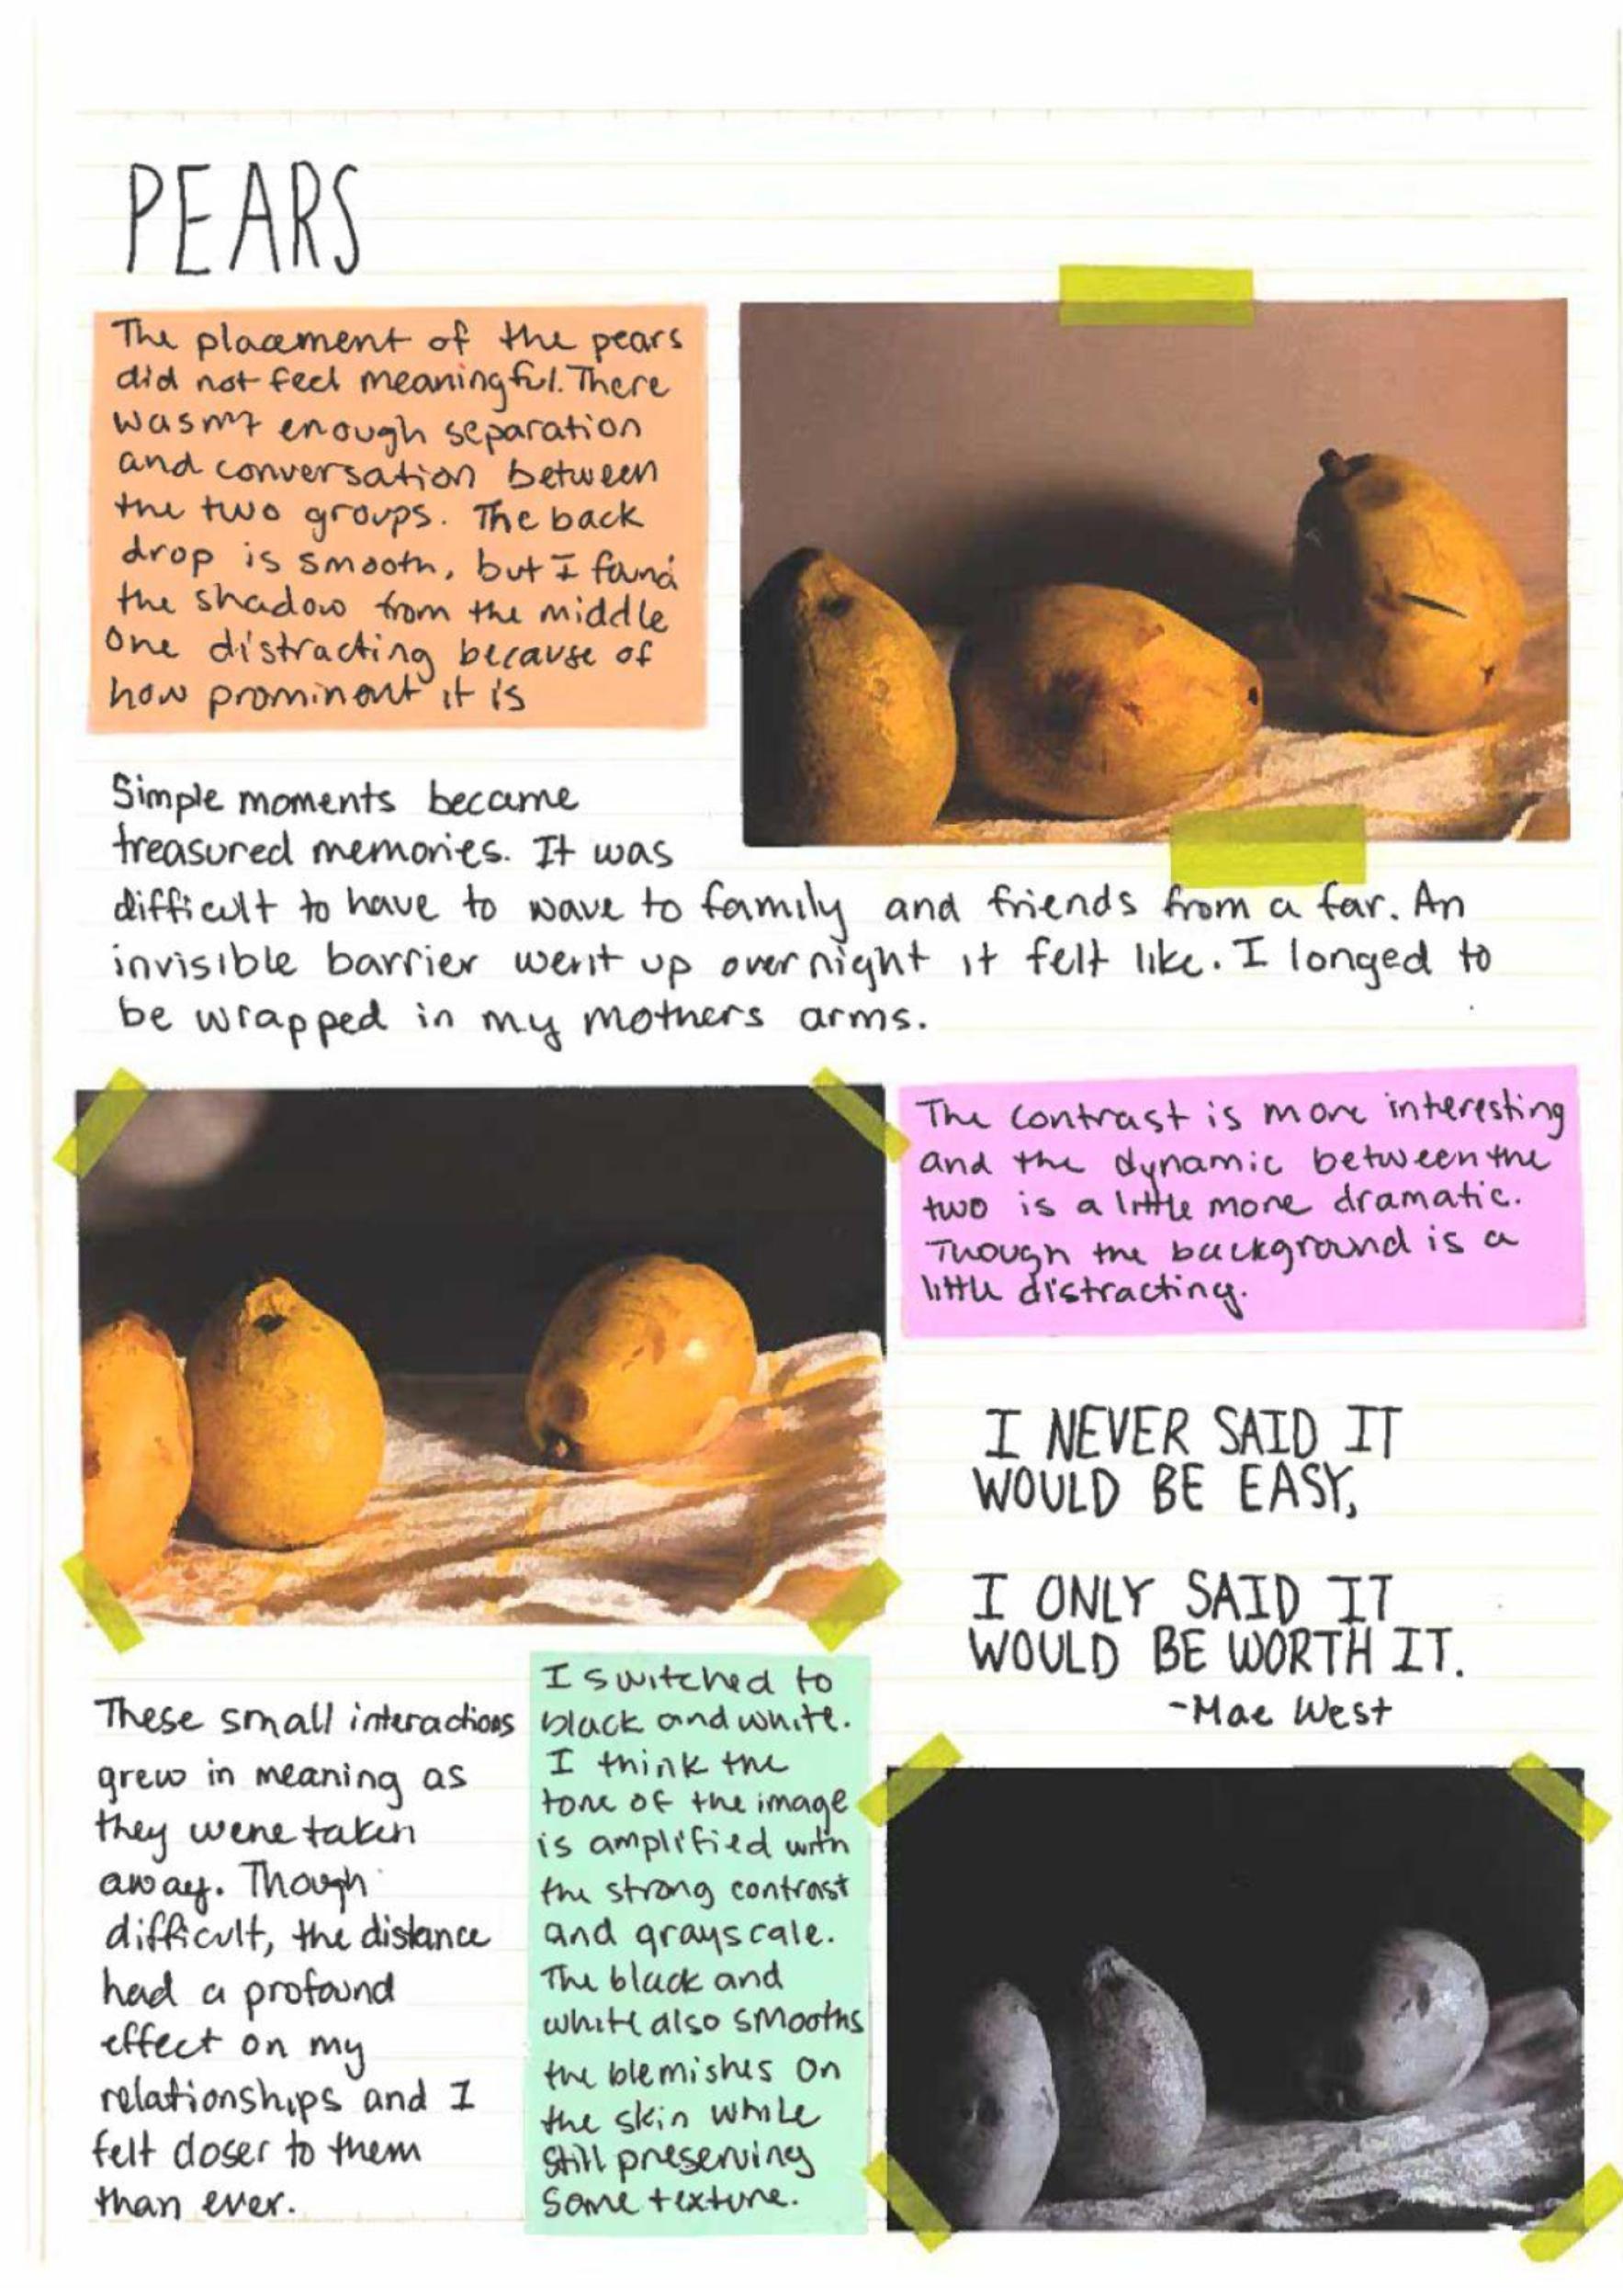 PEARS
The placement of the pears
did not feel meaningful. There
wasn't enough separation
and conversation between
the two groups. The back
drop is smooth, but I found
the shadow from the middle
one distracting because of
how prominent it is
Simple moments became
treasured memories. It was
difficult to have to wave to family and friends from a far. An
invisible barrier went up overnight it felt like. I longed to
be wrapped in my mothers arms.
The contrast is more interesting
and the dynamic between the
two is a little more dramatic.
Though the background is a
little distracting.
I NEVER SAID IT
WOULD BE EASY,
I ONLY SAID IT
WOULD BE WORTH IT.
-Mae West
These small interactions
grew in meaning as
they were taken
away. Though
difficult, the distance
had a profound
effect on my
relationships and I
felt closer to them
than ever.
I switched to
black and white.
I think the
tone of the image
is amplified with
the strong contrast
and grayscale.
The black and
white also smooths
the blemishes on
the skin while
still preserving
some texture.